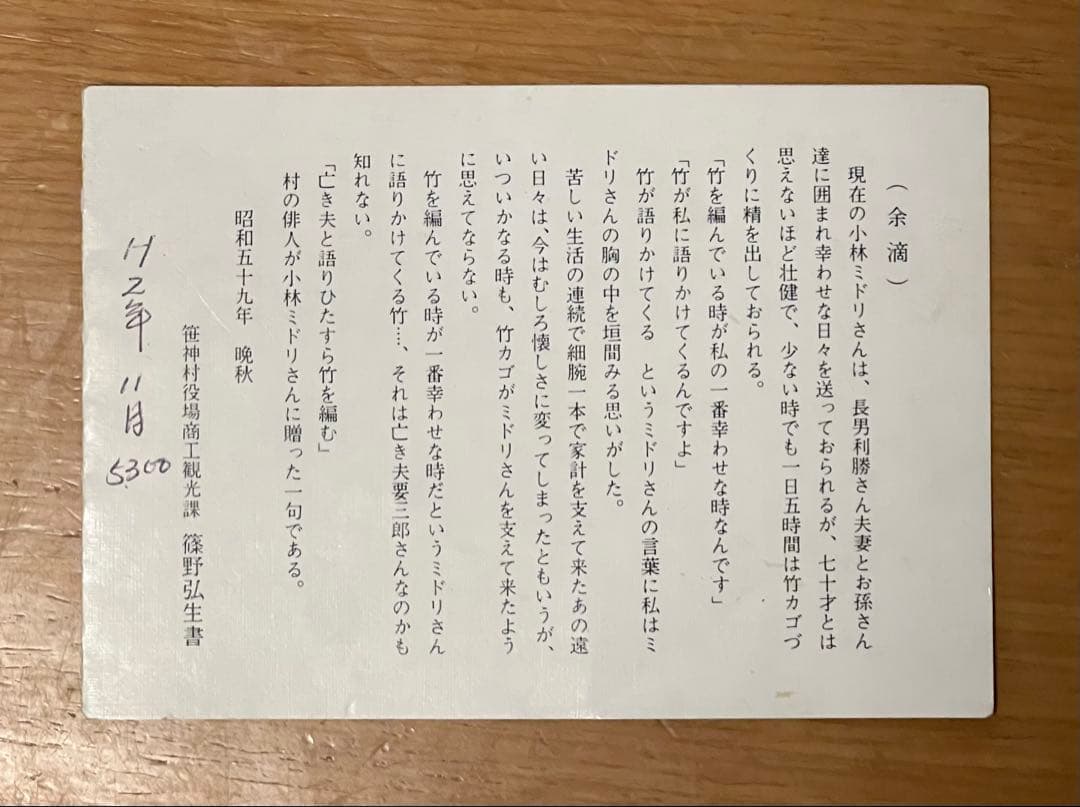 (余滴)
現在の小林ミドリさんは、長男利勝さん夫妻とお孫さん
達に囲まれ幸わせな日々を送っておられるが、七十才とは
思えないほど壮健で、少ない時でも一日五時間は竹カゴづ
くりに精を出しておられる。
「竹を編んでいる時が私の一番幸わせな時なんです」
「竹が私に語りかけてくるんですよ」
竹が語りかけてくる というミドリさんの言葉に私はミ
ドリさんの胸の中を垣間みる思いがした。
苦しい生活の連続で細腕一本で家計を支えて来たあの遠
い日々は、今はむしろ懐しさに変ってしまったともいうが、
いついかなる時も、竹カゴがミドリさんを支えて来たよう
に思えてならない。
竹を編んでいる時が一番幸わせな時だというミドリさん
に語りかけてくる竹…、それは亡き夫要三郎さんなのかも
知れない。
「亡き夫と語りひたすら竹を編む」
村の俳人が小林ミドリさんに贈った一句である。
昭和五十九年 晩秋
笹神村役場商工観光課 篠野弘生書
H2年 11月
5300